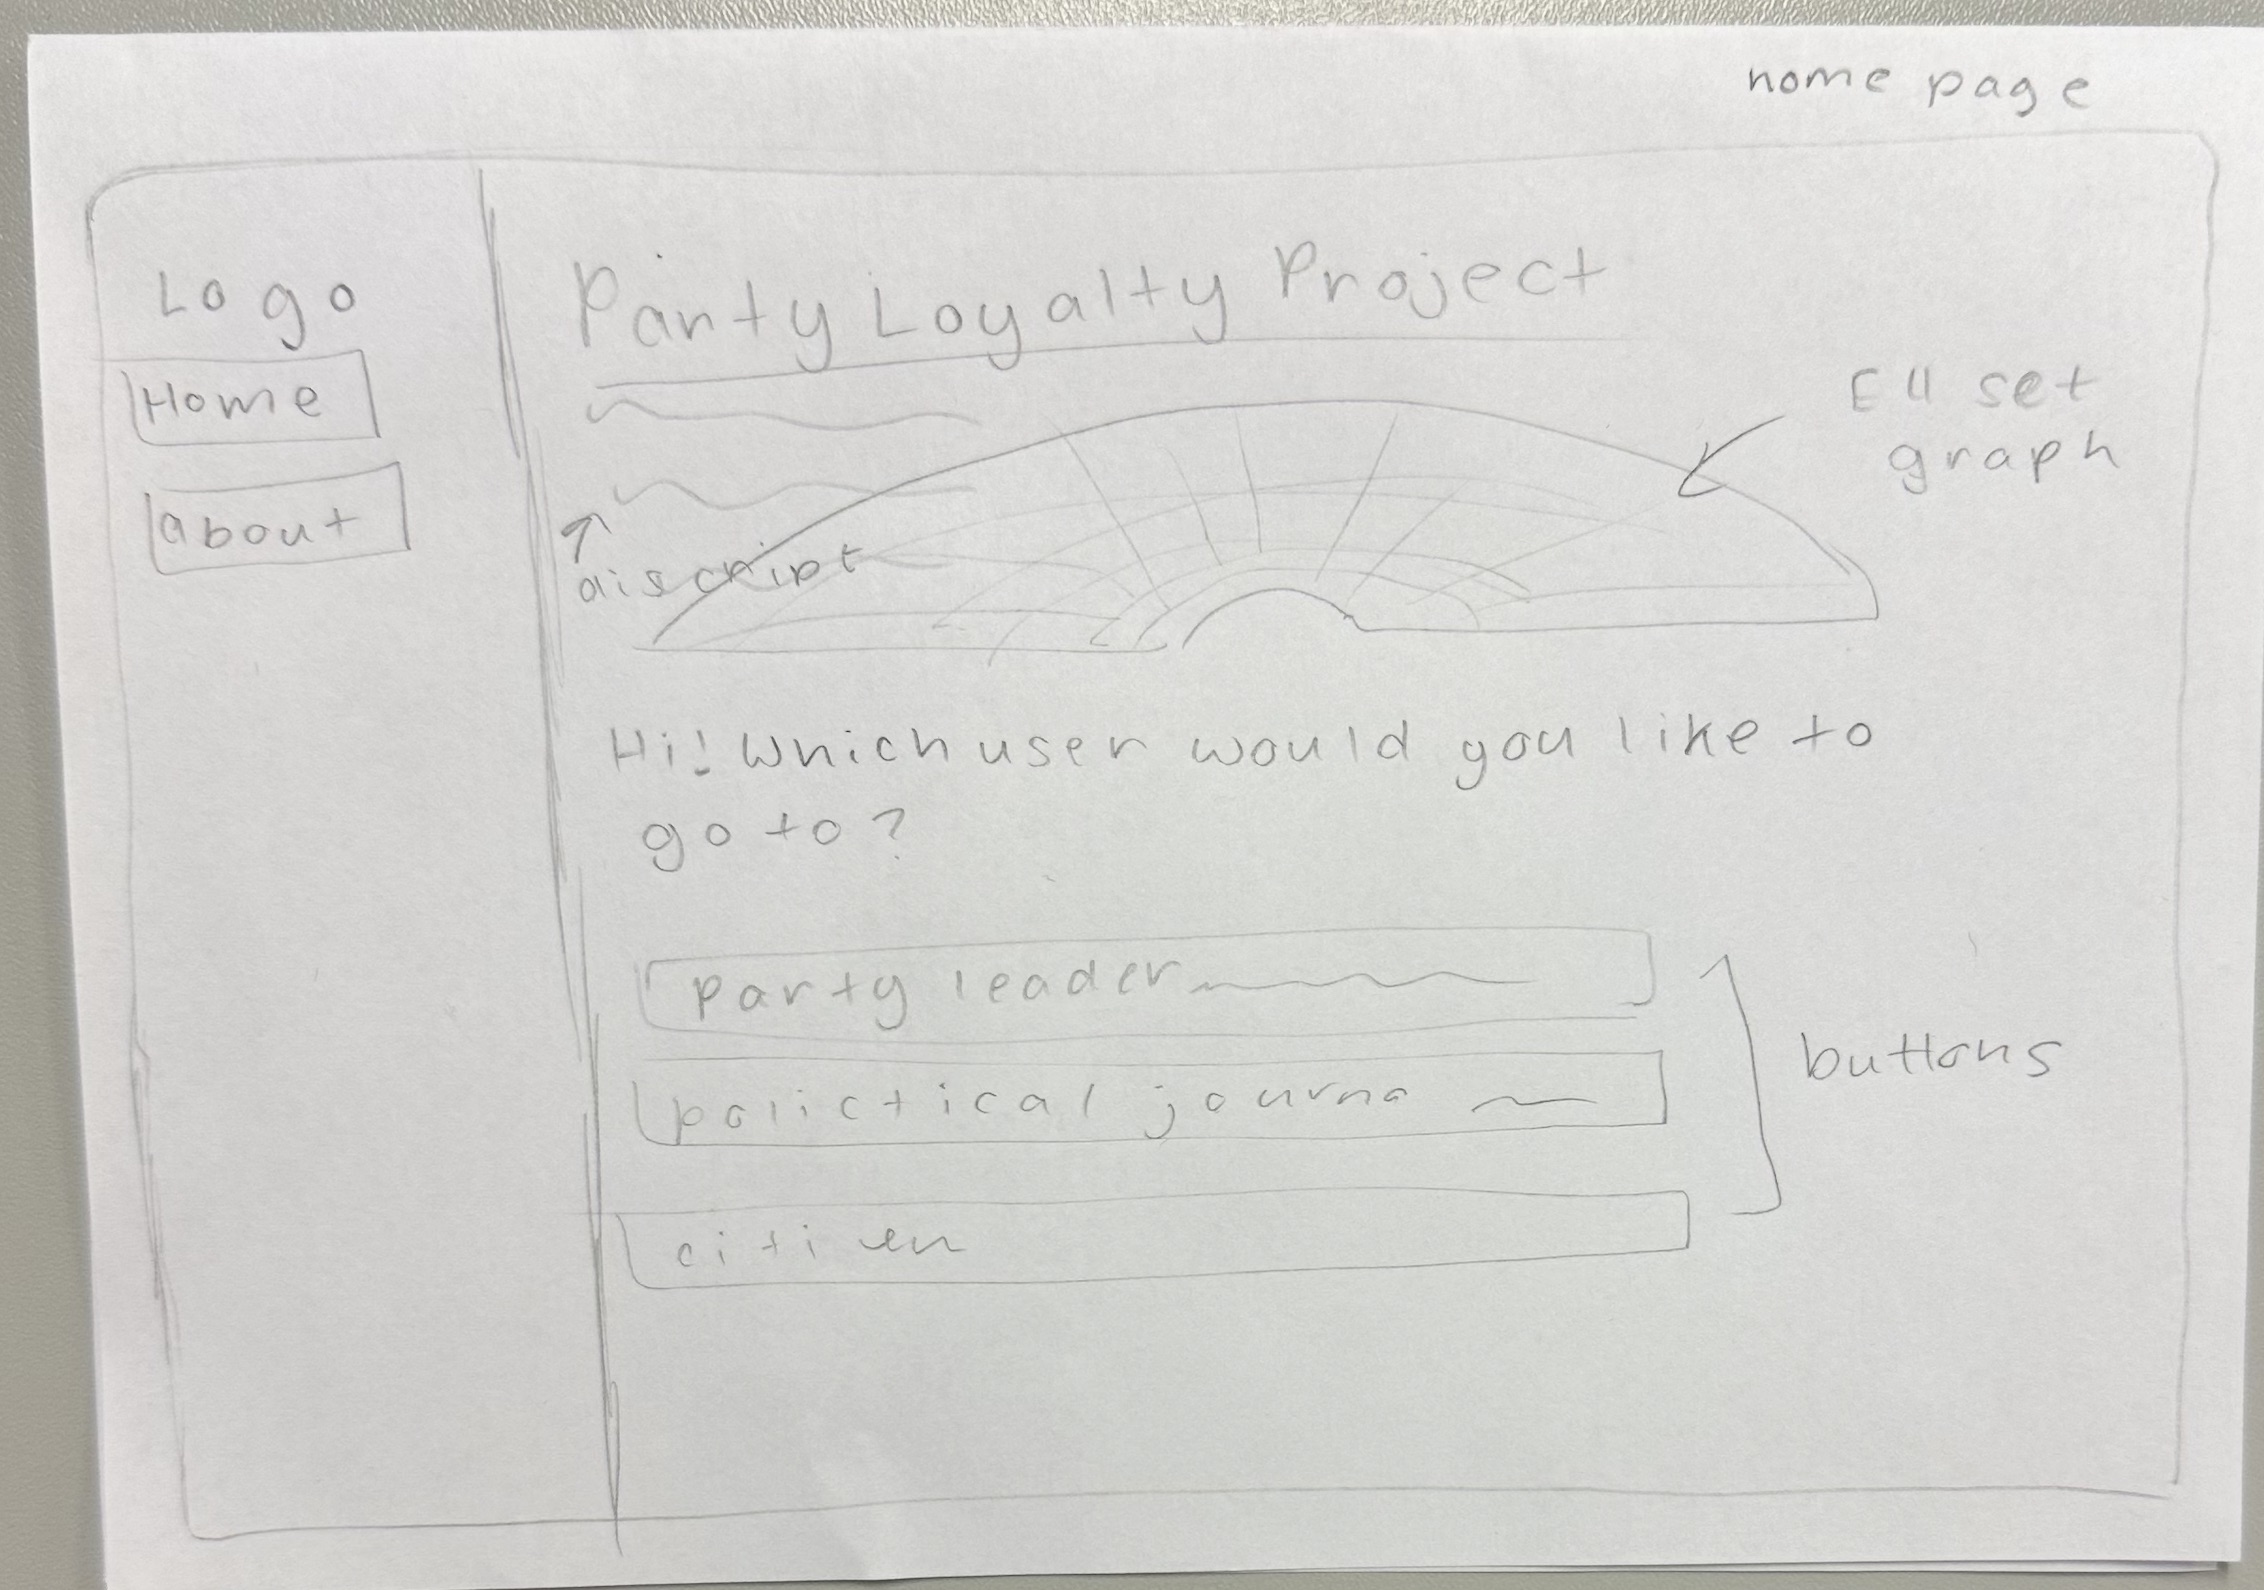 home page
Logo
Home
about
Party Loyalty Project
set
graph
discript
Hi! Which user would you like to
go to?
party leader
polictical journa
buttons
citien